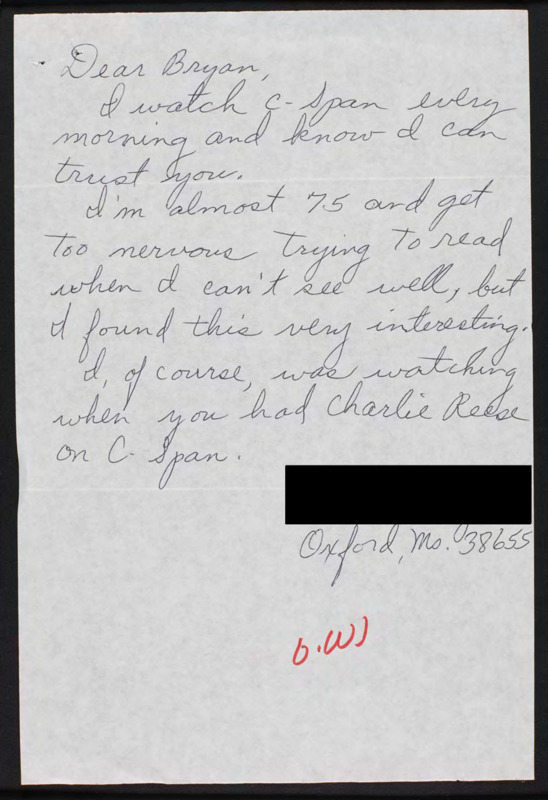 Dear Bryan,
I watch C-Span every
morning and know I can
trust you.
I'm almost 75 and get
too nervous trying to read
when I can't see well, but
I found this very interesting.
I, of course, was watching
when you had Charlie Reese
on C-Span.
Oxford, Ms. 38655